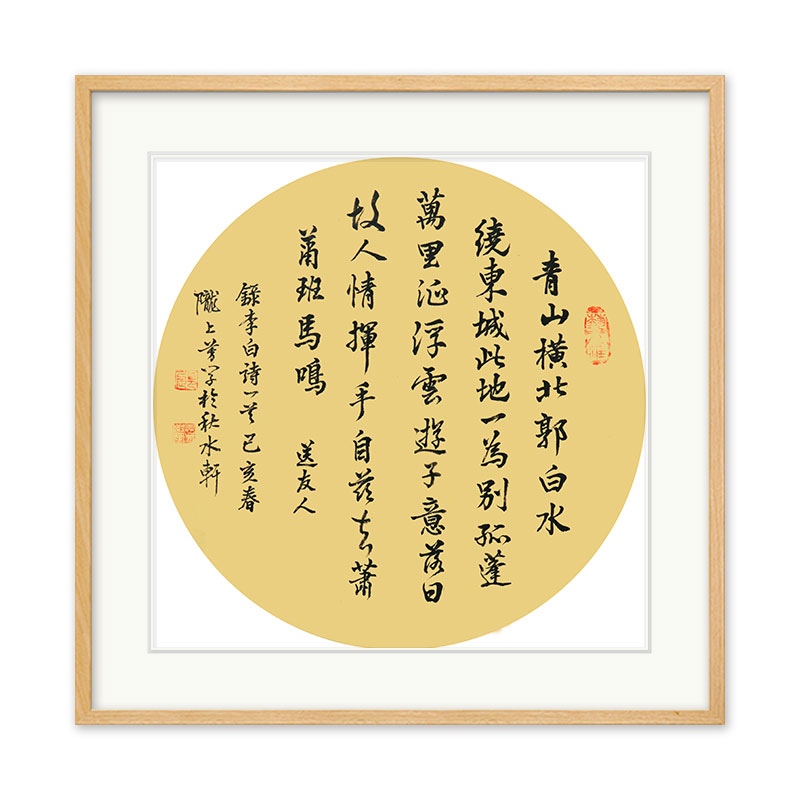 青山橫北郭白水
繞東城此地一為別孤蓬
萬里征浮雲遊子意落日
故人情揮手自茲去蕭
蕭班馬鳴 送友人
錄李白诗一首己亥春
隴上學於秋水軒